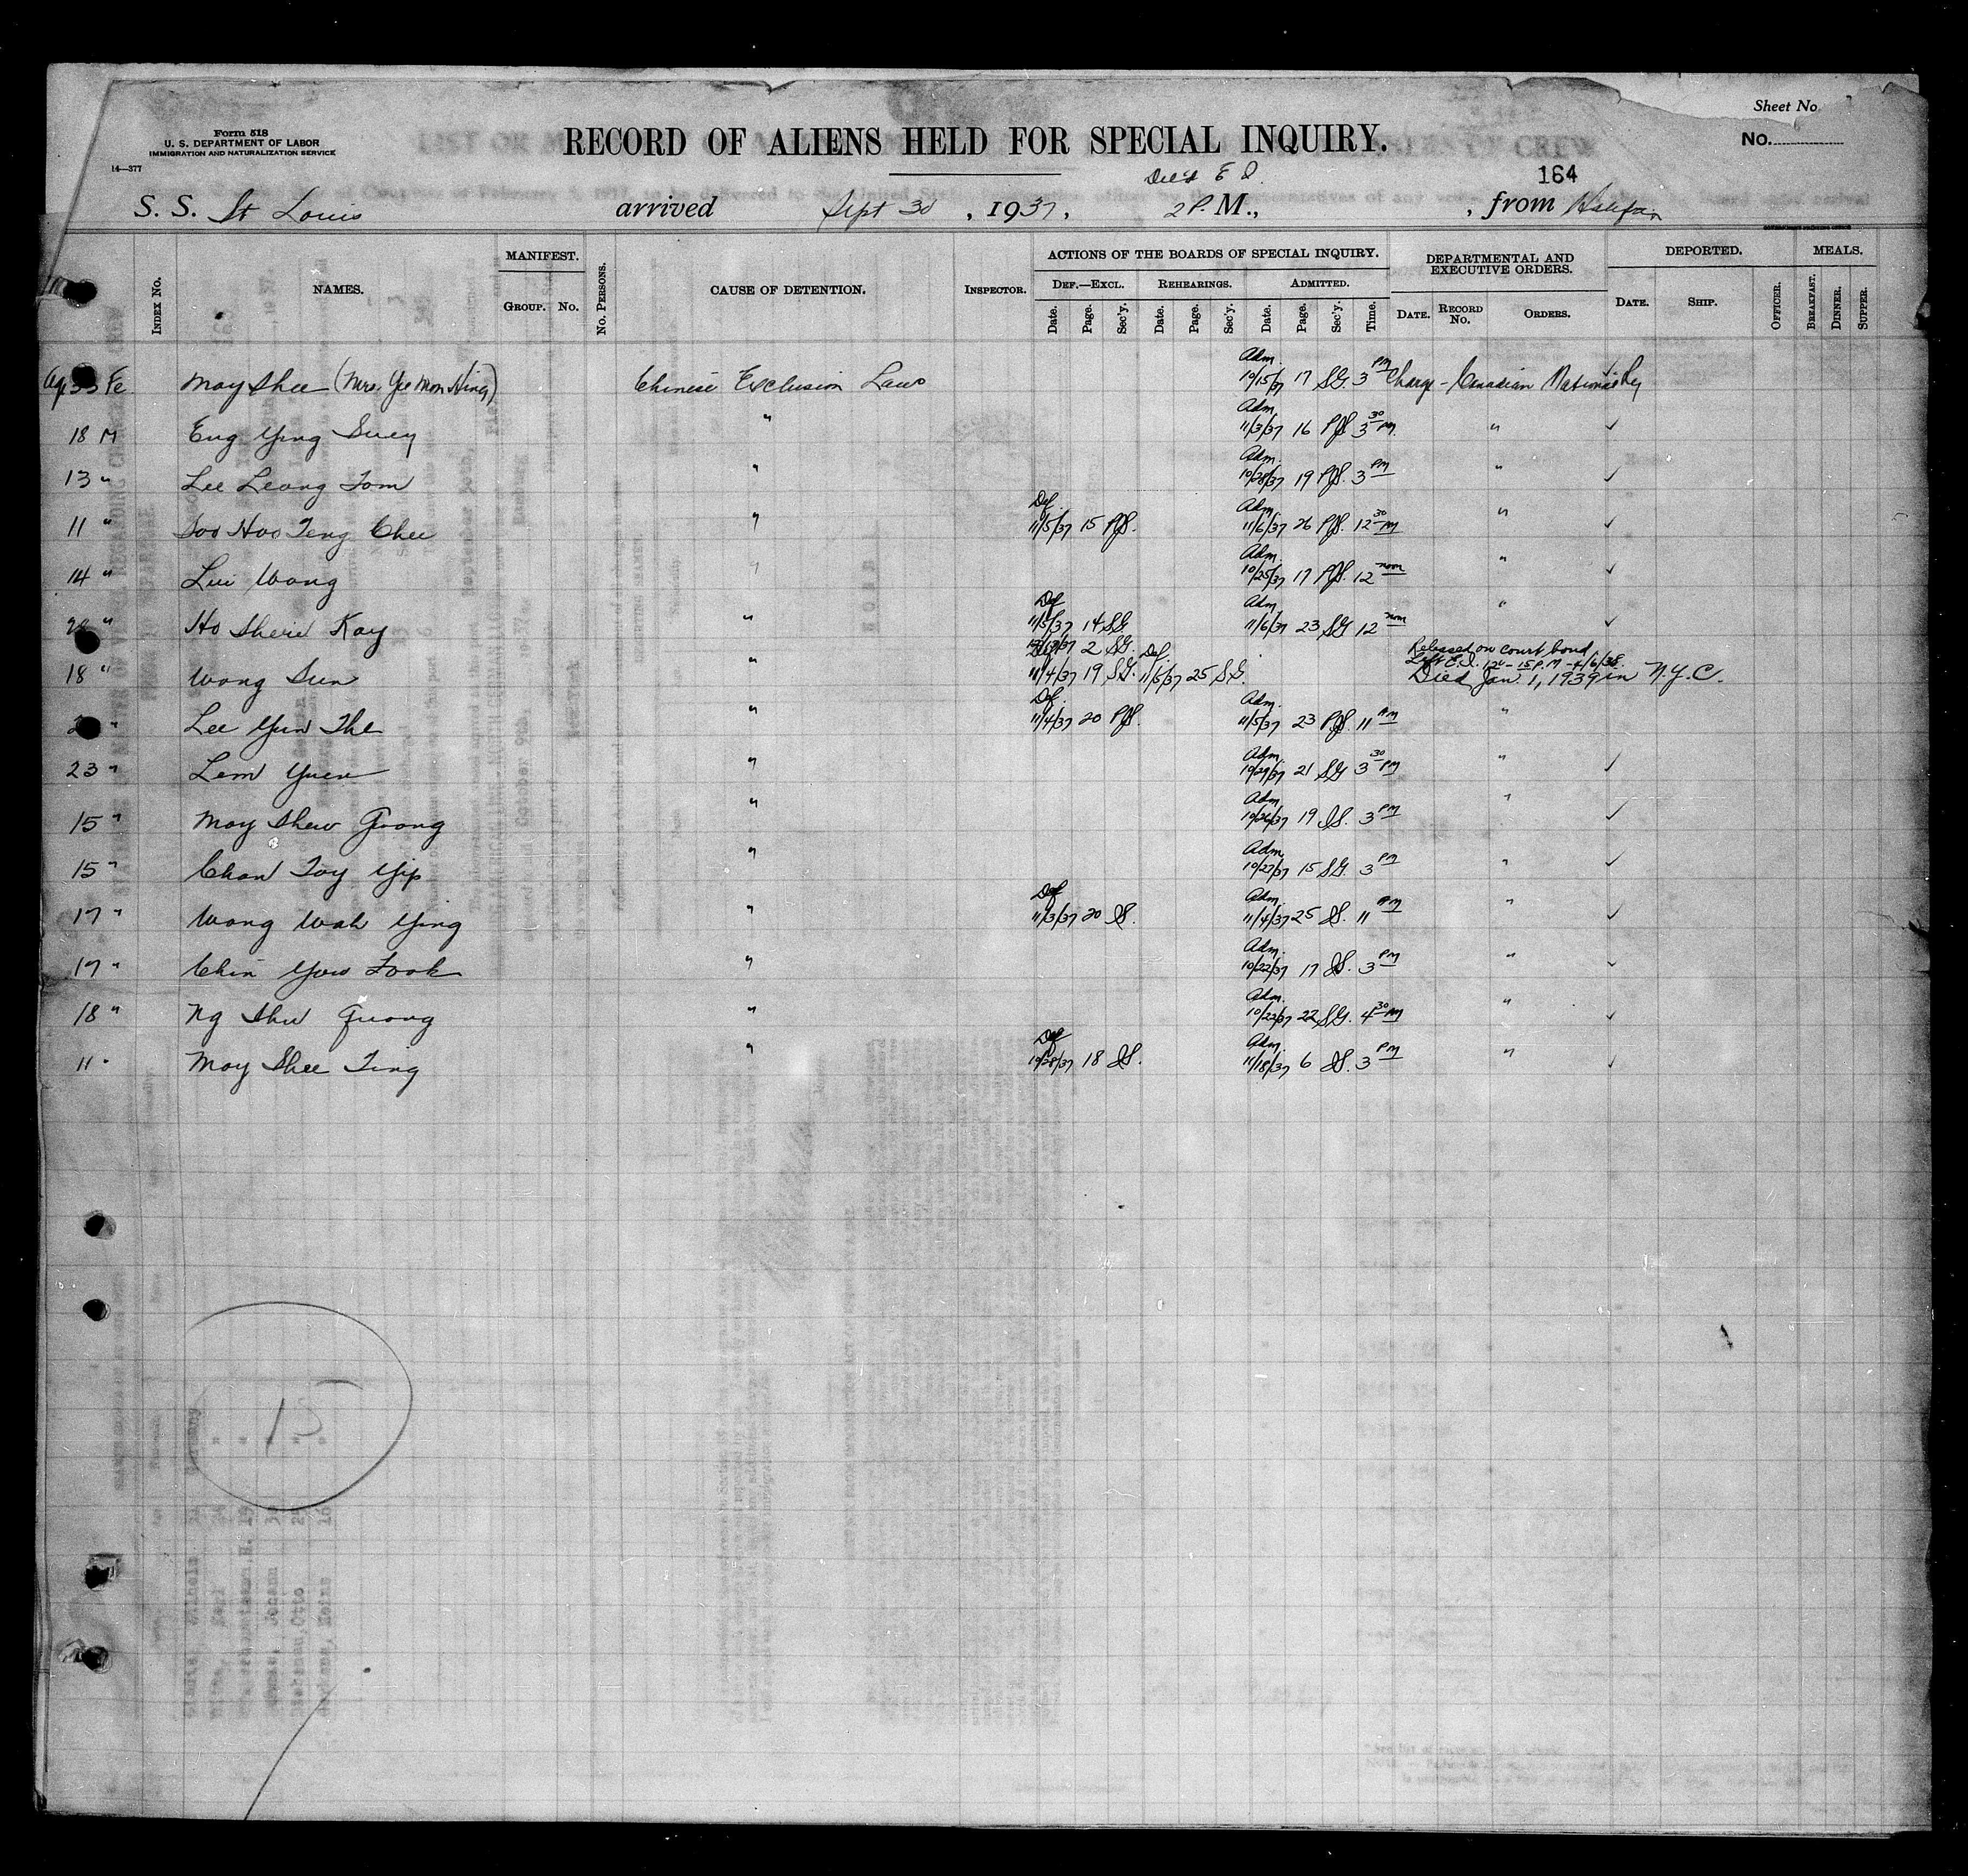 Sheet No.
No.
Form 518
U. S. DEPARTMENT OF LABOR
IMMIGRATION AND NATURALIZATION SERVICE
14—377
RECORD OF ALIENS HELD FOR SPECIAL INQUIRY.
Del'd E I.
164
S. S. St Louis arrived Sept 30, 1937, 2 P. M., , from Halifax
Index No. NAMES. MANIFEST. GROUP. No. No. PERSONS. CAUSE OF DETENTION. INSPECTOR. ACTIONS OF THE BOARDS OF SPECIAL INQUIRY. DEF.—EXCL. Date. Page. Sec'y. REHEARINGS. Date. Page. Sec'y. ADMITTED. Date. Page. Sec'y. Time. DEPARTMENTAL AND EXECUTIVE ORDERS. DATE. RECORD No. ORDERS. DEPORTED. DATE. SHIP. OFFICER. MEALS. BREAKFAST. DINNER. SUPPER.
33 Fe Moy Shee (Mrs. Yee Mon Hing) Chinese Exclusion Laws Adm. 10/15/37 17 SG. 3 PM Charge - Canadian National Ry
18 M Eng Ying Suey " Adm. 11/3/37 16 PJS. 3 30 PM. "
13 " Lee Leong Tom " Adm. 10/28/37 19 PJS. 3 PM "
11 " Soo Hoo Teng Chee " Def. 11/5/37 15 PJS. Adm. 11/6/37 26 PJS. 12 30 PM "
14 " Lui Wong " Adm. 10/25/37 17 PJS. 12 noon "
" Ho Sherd Kay " Def 11/5/37 14 SG Adm. 11/6/37 23 SG 12 noon "
18 " Wong Sun " 2 SG. 11/4/37 19 SG. Def. 11/5/37 25 SG. Released on court bond
Left E.I. 12 - 15 P.M - 4/6/38.
Died Jan. 1, 1939 in N.Y.C.
" Lee Yun The " Def. 11/4/37 20 PJS. Adm. 11/5/37 23 PJS. 11 AM "
23 " Lem Yuen " Adm. 10/29/37 21 SG 3 30 PM "
15 " Moy Shew Guong " Adm. 10/26/37 19 IS. 3 PM "
15 " Chan Toy Yip " Adm. 10/27/37 15 SG. 3 PM "
17 " Wong Wah Ying " Def 11/3/37 20 IS. Adm. 11/4/37 25 IS. 11 AM "
17 " Chin Yow Fook " Adm. 10/22/37 17 IS. 3 PM "
18 " Ng Shu Guong " Adm. 10/22/37 22 SG. 4 30 PM "
11 " Moy Shee Ting " Def 10/28/37 18 IS. Adm. 11/18/37 6 IS. 3 PM "